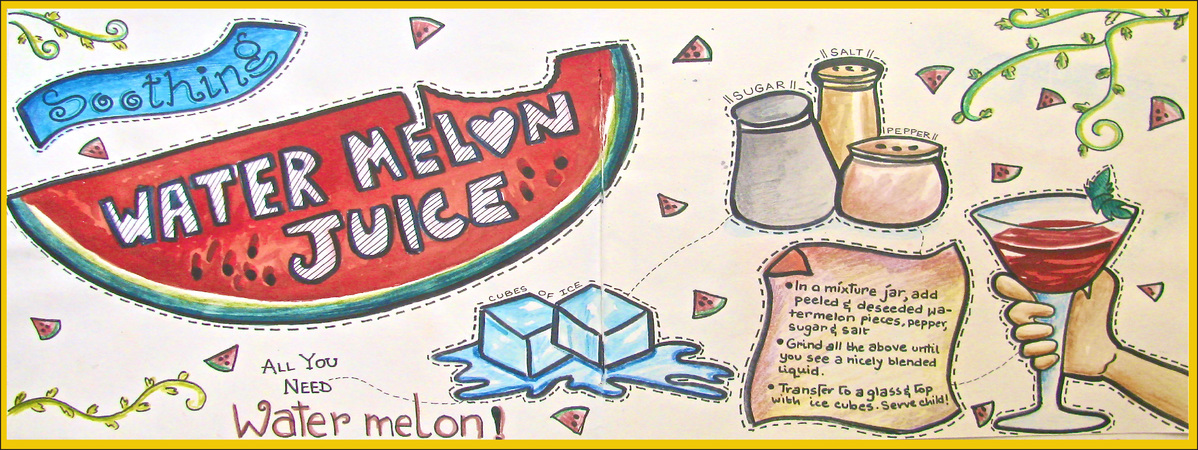 Soothing
WATER MELON
JUICE
SUGAR
SALT
PEPPER
CUBES OF ICE
ALL YOU
NEED
Water melon!
• In a mixture jar, add
peeled & deseeded wa-
termelon pieces, pepper,
sugar & salt
• Grind all the above until
you see a nicely blended
liquid.
• Transfer to a glass & top
with ice cubes. Serve child!